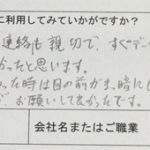 に利用してみていかがですか？
連絡も親切で、すぐデー
かったと思います。
った時は目の前がま、暗に
お願いして良かったです。
会社名またはご職業